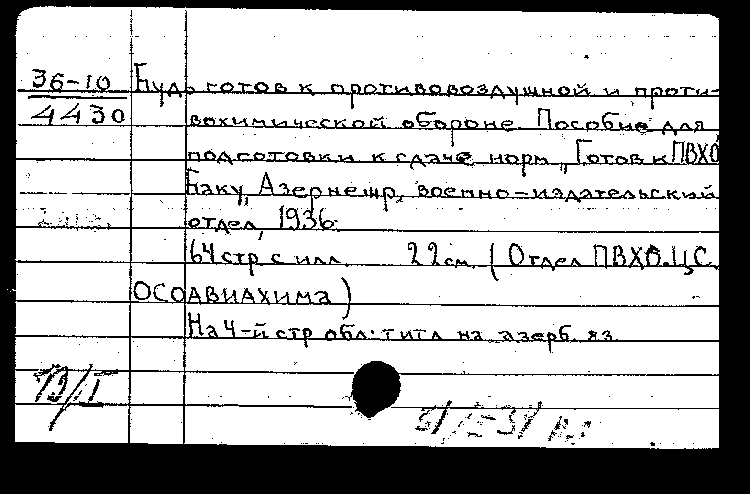 36-10 Будь готов к противовоздушной и проти-
4430 вохимической обороне. Пособие для
подготовки к сдаче норм „Готов к ПВХО
Баку, Азернешр, военно-издательский
отдел, 1936.
64 стр с илл. 22 см. (Отдел ПВХО. ЦС.
ОСОАВИАХИМА)
На 4-й стр обл: титл на азерб. яз.